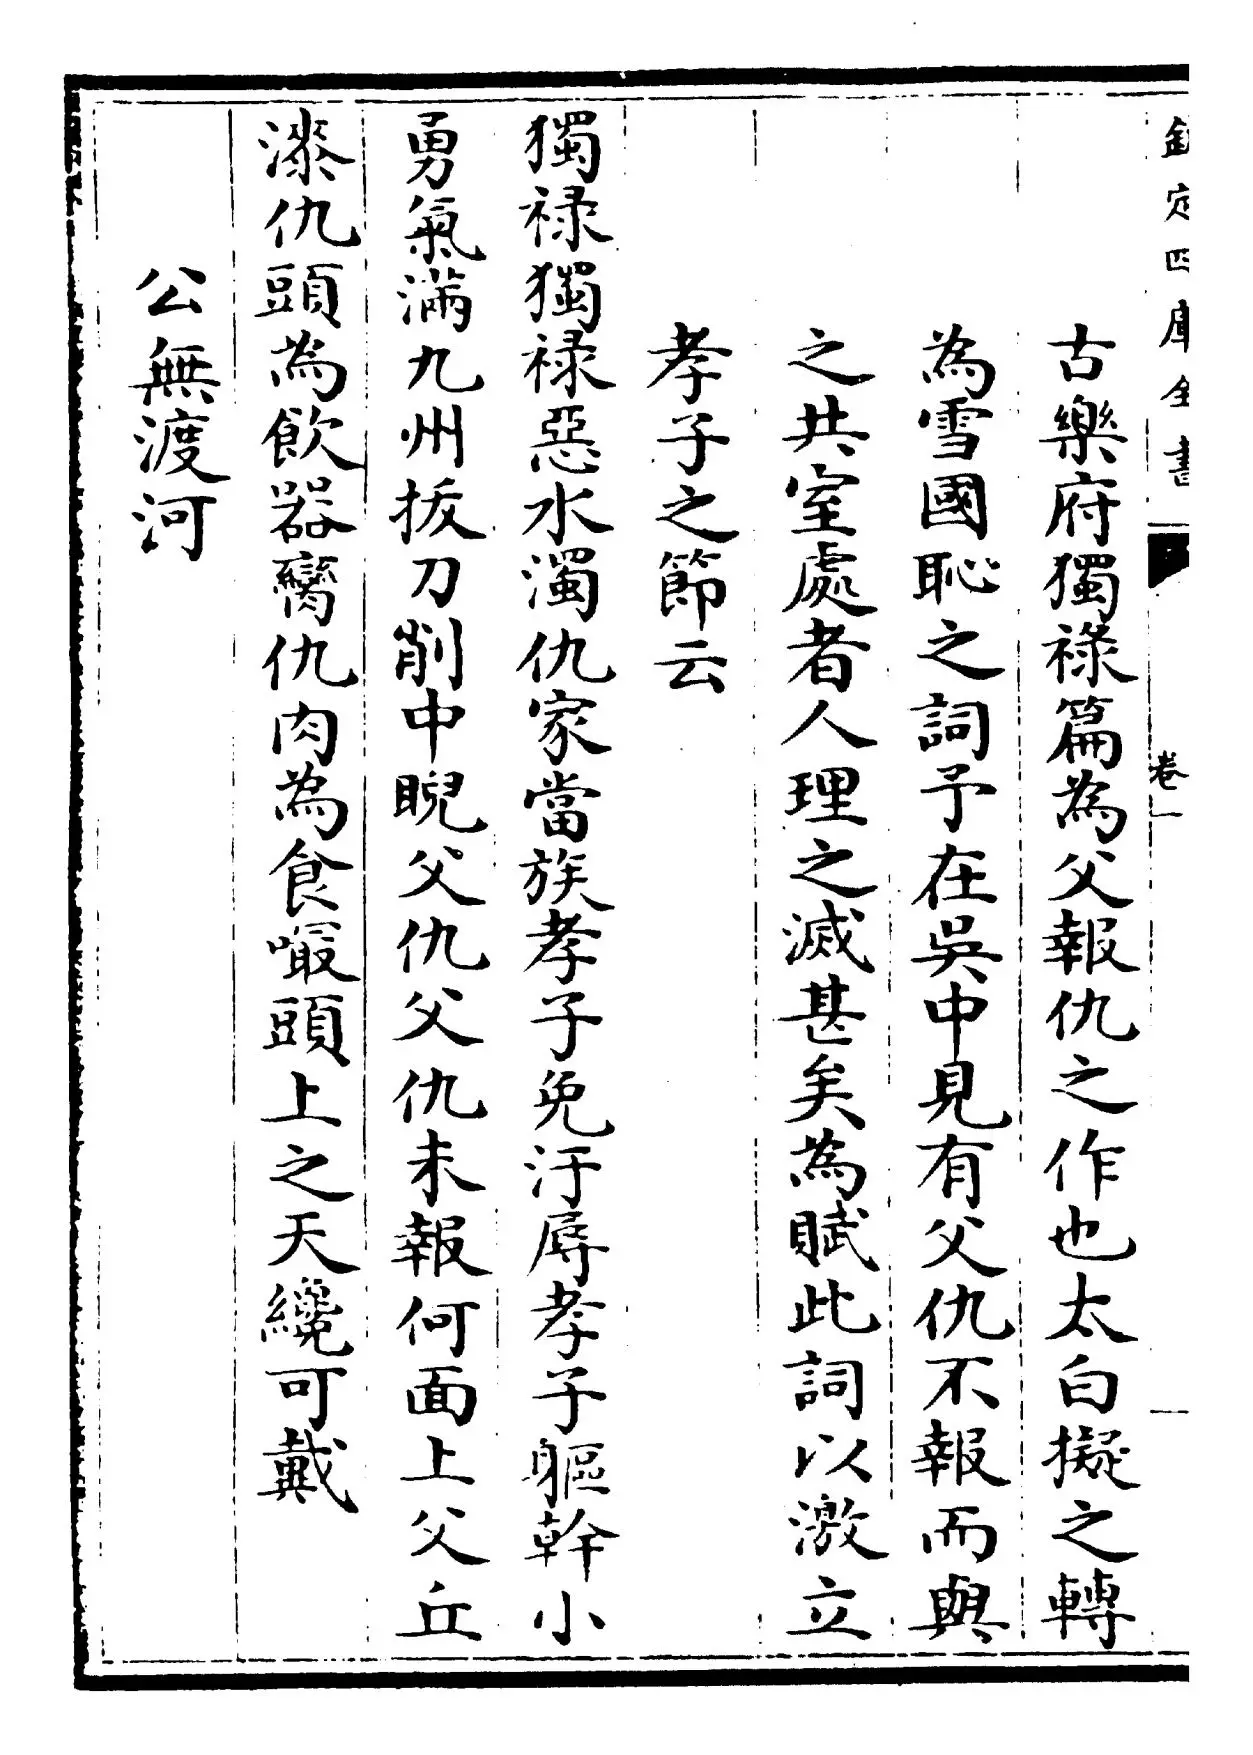 欽定四庫全書
卷一
古樂府獨祿篇為父報仇之作也太白擬之轉
為雪國恥之詞予在吳中見有父仇不報而與
之共室處者人理之滅甚矣為賦此詞以激立
孝子之節云
獨祿獨祿惡水濁仇家當族孝子免汙辱孝子軀幹小
勇氣滿九州拔刀削中睨父仇父仇未報何面上父丘
漆仇頭為飲器臠仇肉為食嘬頭上之天纔可戴
公無渡河